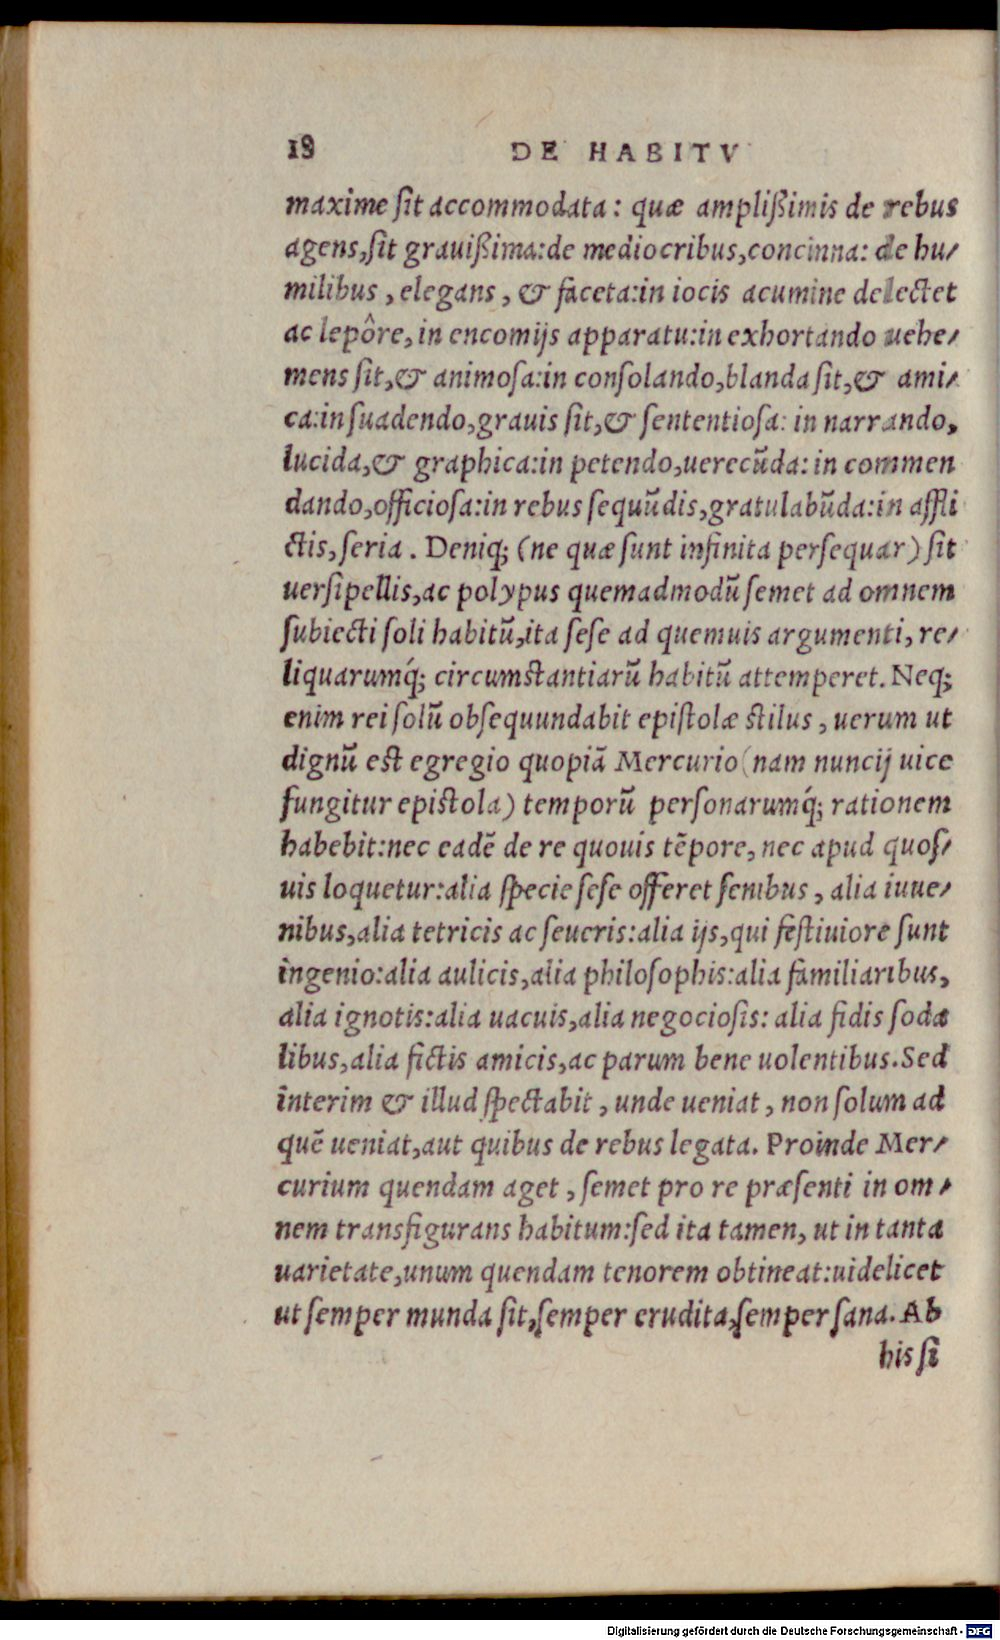 18 DE HABITV
maxime ſit accommodata: quæ ampliſsimis de rebus
agens,ſit grauiſsima:de mediocribus,concinna: de hu-
milibus, elegans, & faceta:in iocis acumine delectet
ac lepôre, in encomijs apparatu:in exhortando uehe-
mens ſit,& animoſa:in conſolando,blanda ſit,& ami-
ca:in ſuadendo,grauis ſit,& ſententioſa: in narrando,
lucida,& graphica:in petendo,uerecũda: in commen
dando,officioſa:in rebus ſequũdis,gratulabũda:in affli
ctis,ſeria. Deniq; (ne quæ ſunt infinita perſequar) ſit
uerſipellis,ac polypus quemadmodũ ſemet ad omnem
ſubiecti ſoli habitũ,ita ſeſe ad quemuis argumenti, re-
liquarumq́; circumſtantiarũ habitũ attemperet. Neq;
enim rei ſolũ obſequundabit epiſtolæ ſtilus, uerum ut
dignũ eſt egregio quopiã Mercurio (nam nuncij uice
fungitur epiſtola) temporũ perſonarumq́; rationem
habebit:nec eadẽ de re quouis tẽpore, nec apud quoſ-
uis loquetur:alia ſpecie ſeſe offeret ſenibus, alia iuue-
nibus,alia tetricis ac ſeueris:alia ijs,qui feſtiuiore ſunt
ingenio:alia aulicis,alia philoſophis:alia familiaribus,
alia ignotis:alia uacuis,alia negocioſis: alia fidis ſoda
libus,alia fictis amicis,ac parum bene uolentibus. Sed
interim & illud ſpectabit, unde ueniat, non ſolum ad
quẽ ueniat,aut quibus de rebus legata. Proinde Mer-
curium quendam aget, ſemet pro re præſenti in om-
nem transfigurans habitum:ſed ita tamen, ut in tanta
uarietate,unum quendam tenorem obtineat:uidelicet
ut ſemper munda ſit,ſemper erudita,ſemper ſana. Ab
his ſi
Digitalisierung gefördert durch die Deutsche Forschungsgemeinschaft - DFG